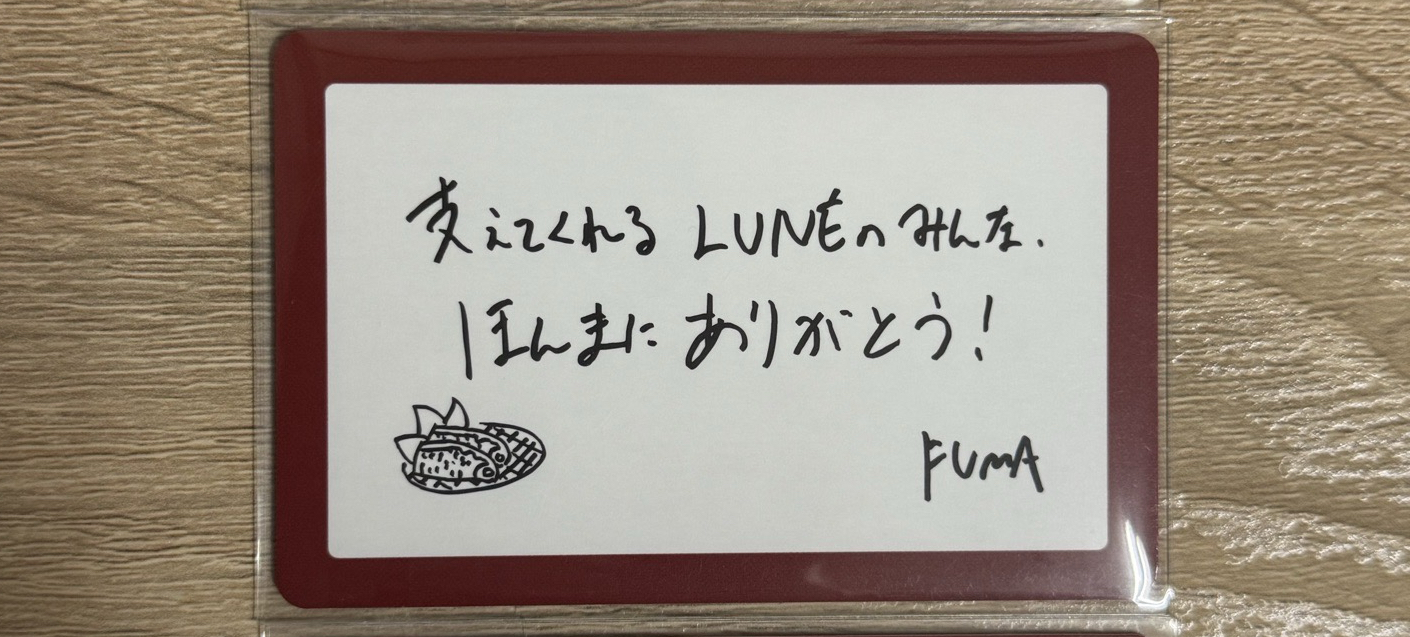 支えてくれる LUNEのみんな.
ほんまに ありがとう!
FUMA